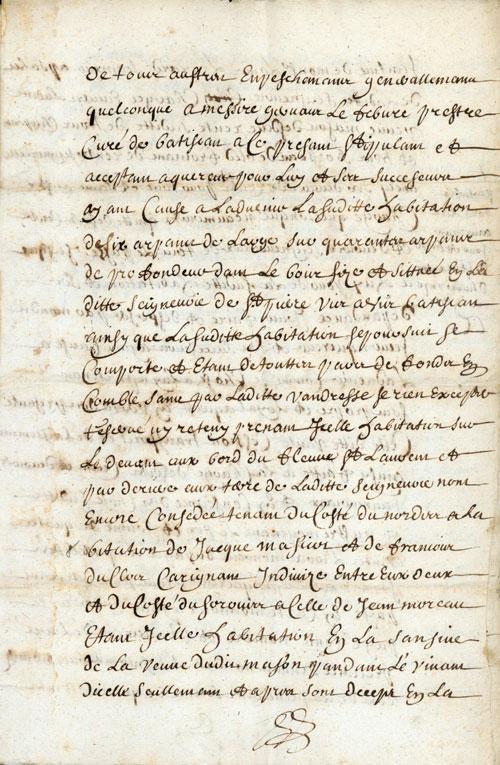 de tous austres Enpeschemans generallemans
quelconque a messire gervais Le febure prestre
Curé de batiscan a ce presant stipulant et
acceptant aquereur pour Luy et ses successeurs
ayant Cause a Ladvenir La suditte habitation
de six arpants de Large sur quarante arpants
de profondeur dans Le bout size et sittuée En La
ditte seigneurie de vis a vis batiscan
ainsy que La suditte habitation se poursuit se
Comporte et Etant de toutte part de fond En
Comble, sans par Laditte vandresse se rien Excepter
reserué ny reteny prenant Jcelle habitation sur
Le devant aux bord du fleuve st Laurent et
par deriere aux tere de Laditte seigneurie non
Encore Consedée tenant du Costé du nordest a La
bitation de Jacque massicot et de francois
duclos Carignant Indivize Entre Eux deux
et du Costé du sorouest a Celle de Jean moreau
Etant Jcelle habitation En La sansive
de La veuve dudit mason pandant Le vivant
dicelle seullemant et apres sont deceps En La